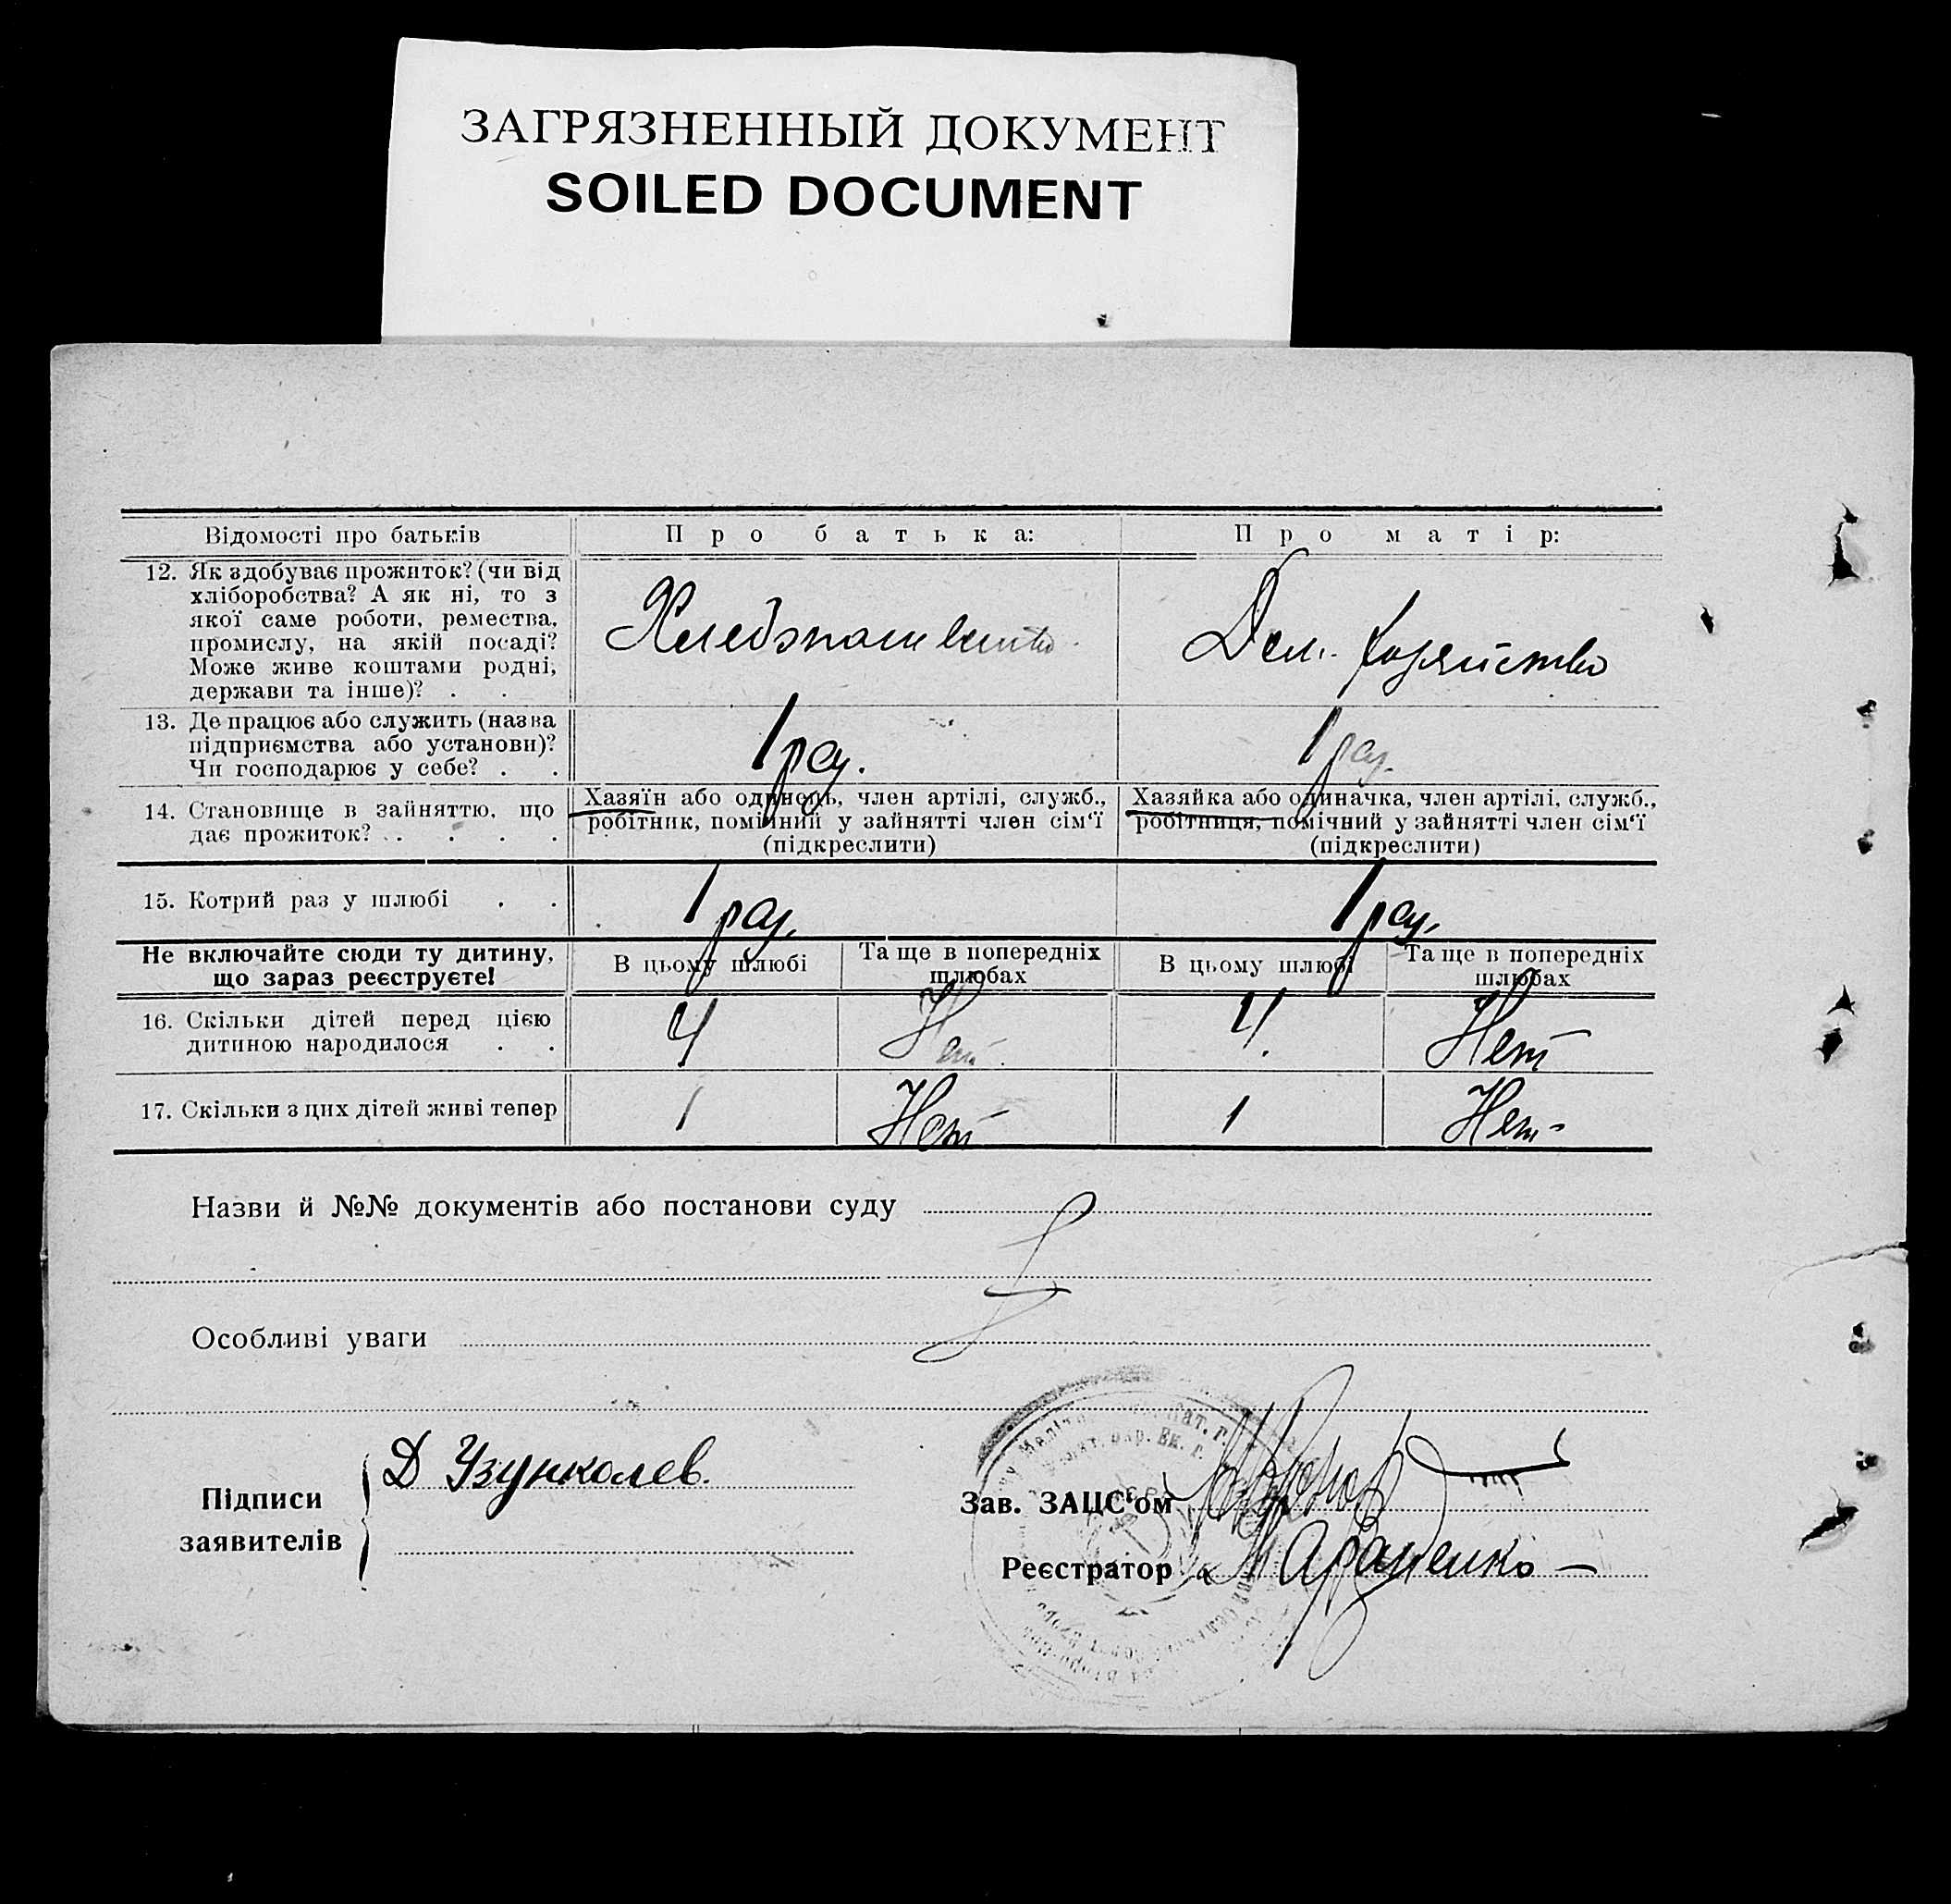 ЗАГРЯЗНЕННЫЙ ДОКУМЕНТ
SOILED DOCUMENT
Відомості про батьків
Про батька:
Про матір:
12. Як здобуває прожиток? (чи від
хліборобства? А як ні, то з
якої саме роботи, ремества,
промислу, на якій посаді?
Може живе коштами родні,
держави та інше)? . .
Хлебопашество
Дом. хозяйство
13. Де працює або служить (назва
підприємства або установи)?
Чи господарює у себе? . .
1 раз.
1 раз.
14. Становище в зайняттю, що
дає прожиток? . . . . .
Хазяїн або одинець, член артілі, служб.,
робітник, помічний у зайнятті член сім'ї
(підкреслити)
Хазяйка або одиначка, член артілі, служб.,
робітниця, помічний у зайнятті член сім'ї
(підкреслити)
15. Котрий раз у шлюбі . .
1 раз.
1 раз.
Не включайте сюди ту дитину,
що зараз реєструєте!
В цьому шлюбі
Та ще в попередніх
шлюбах
В цьому шлюбі
Та ще в попередніх
шлюбах
16. Скільки дітей перед цією
дитиною народилося . .
4
Нет
4.
Нет
17. Скільки з цих дітей живі тепер
1
Нет
1
Нет
Назви й №№ документів або постанови суду
Особливі уваги
Підписи
заявителів
Д Узунколев.
Зав. ЗАЦС'ом
Реєстратор